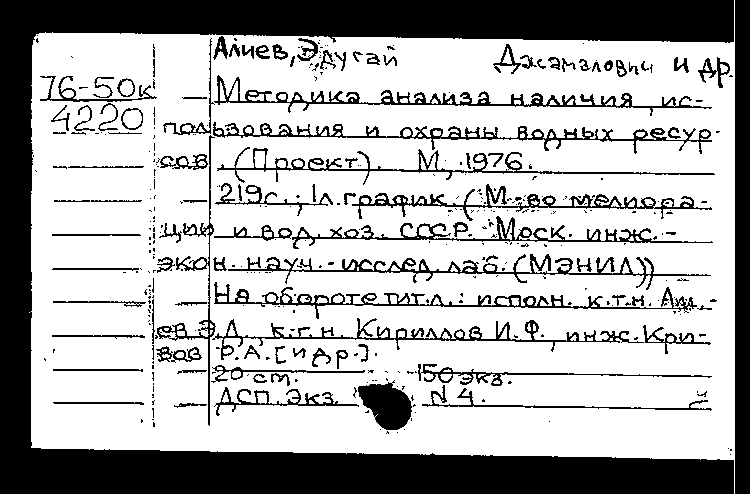 Алиев, Эдугай Джамалович и др.
76-50к
4220
Методика анализа наличия, ис-
пользования и охраны водных ресур-
сов. (Проект). М., 1976.
219с.; 1л. график (М-во мелиора-
ции и вод. хоз. СССР. Моск. инж.-
экон. науч.-исслед. лаб. (МЭНИЛ))
На обороте тит. л.: исполн. к.т.н. Али-
ев Э.Д., к.г.н. Кириллов И.Ф., инж. Кри-
вов Р.А. [и др.].
20 см. 150 экз.
ДСП. Экз. N 4.